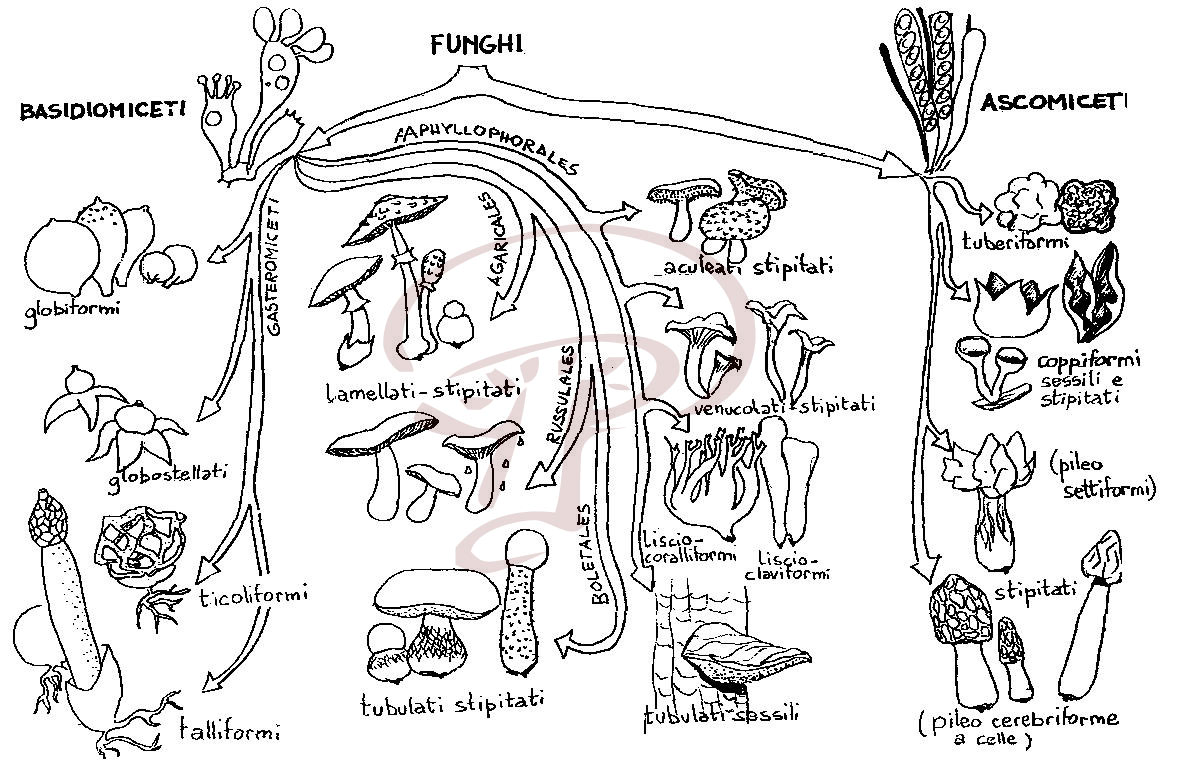 FUNGHI
BASIDIOMICETI
ASCOMICETI
APHYLLOPHORALES
GASTEROMICETI
AGARICALES
RUSSULALES
BOLETALES
globiformi
globostellati
ticoliformi
talliformi
lamellati-stipitati
tubulati stipitati
aculeati stipitati
venucolati-stipitati
Liscio-
coralliformi
Liscio-
claviformi
tubulati-sessili
tuberiformi
coppiformi
sessili e
stipitati
(pileo
settiformi)
stipitati
(pileo cerebriforme
a celle)